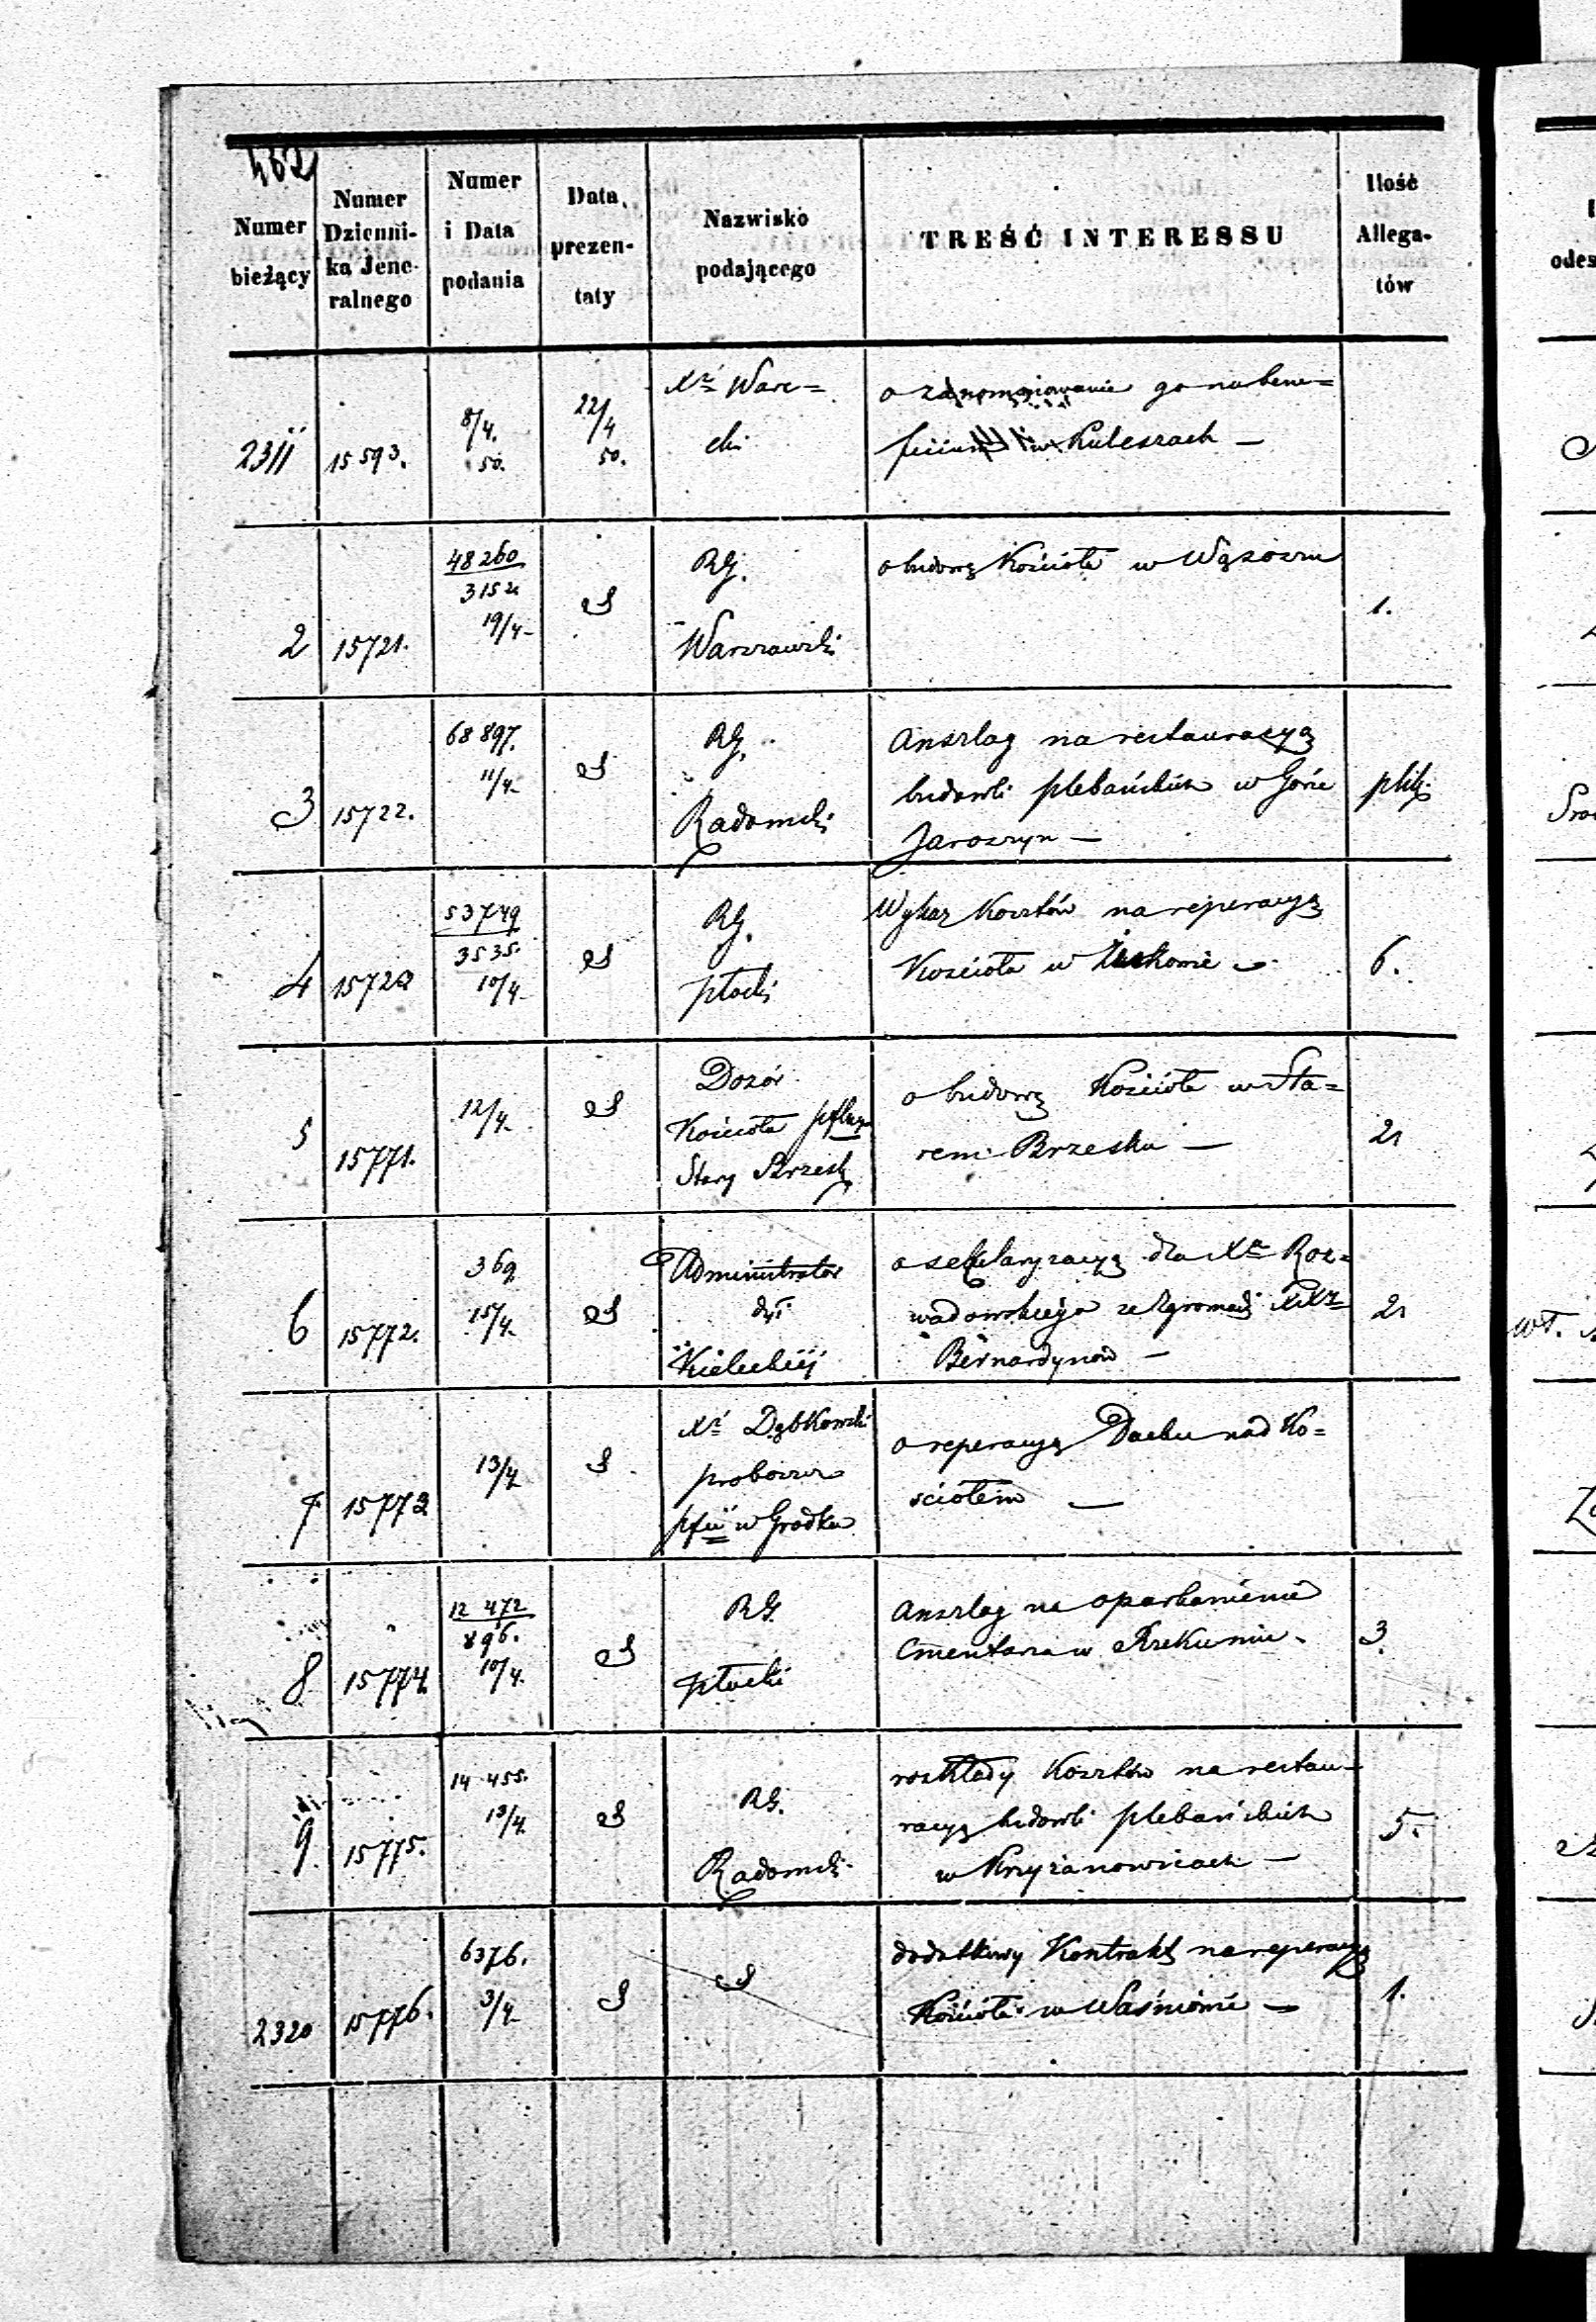 462
Numer bieżący
Numer Dzienni- ka Jene- ralnego
Numer i Data podania
Data prezen- taty
Nazwisko podającego
TREŚĆ INTERESSU
Ilość Allega- tów
2311 15593. 8/4. 50. 22/4 50.
Xdz Warc=
cki
o zanomniowanie go na bene=
ficium w Kuleszach —
2 15721. 48260 3152 19/4-
RG.
Warszawski
o budowę Kościoła w Wąsoszu
1.
3 15722. 68897. 11/4-
RG.
Radomski
Anszlag na restauracyą
budowli plebańskich w Górze
Jaroszyn —
plik.
4 15723 53749 3535. 10/4-
RG.
płocki
Wykaz Kosztów na reperacyą
Kościoła w
6.
5 15771. 12/4-
Dozór
Kościoła
Stary Brzesk
o budowę Kościoła w Sta=
rem Brzesku —
2
6 15772. 369 15/4-
Administrator
dyi
Kieleckiej
o sekularyzacyą dla Xa Roz=
wadowskiego ze Zgromadz XX
Bernardynów —
2
7 15773 13/4
Xdz Dąbkowski
proboszcz
pfii w Grodku
o reperacyą Dachu nad Ko=
ściołem —
8 15774 12 472 896. 10/4-
RG.
płocki
Anszlag na oparkanienie
Cmentarza w Rzekuniu.
3.
9. 15775. 14 455. 13/4
RG.
Radomski
rozkłady Kosztów na restau-
racyą budowli plebańskich
w Krzyżanowicach —
5.
2320 15776. 6376. 3/4-
dodatkowy Kontrakt na reperacyą
Kościoła w Waśniowie —
1.